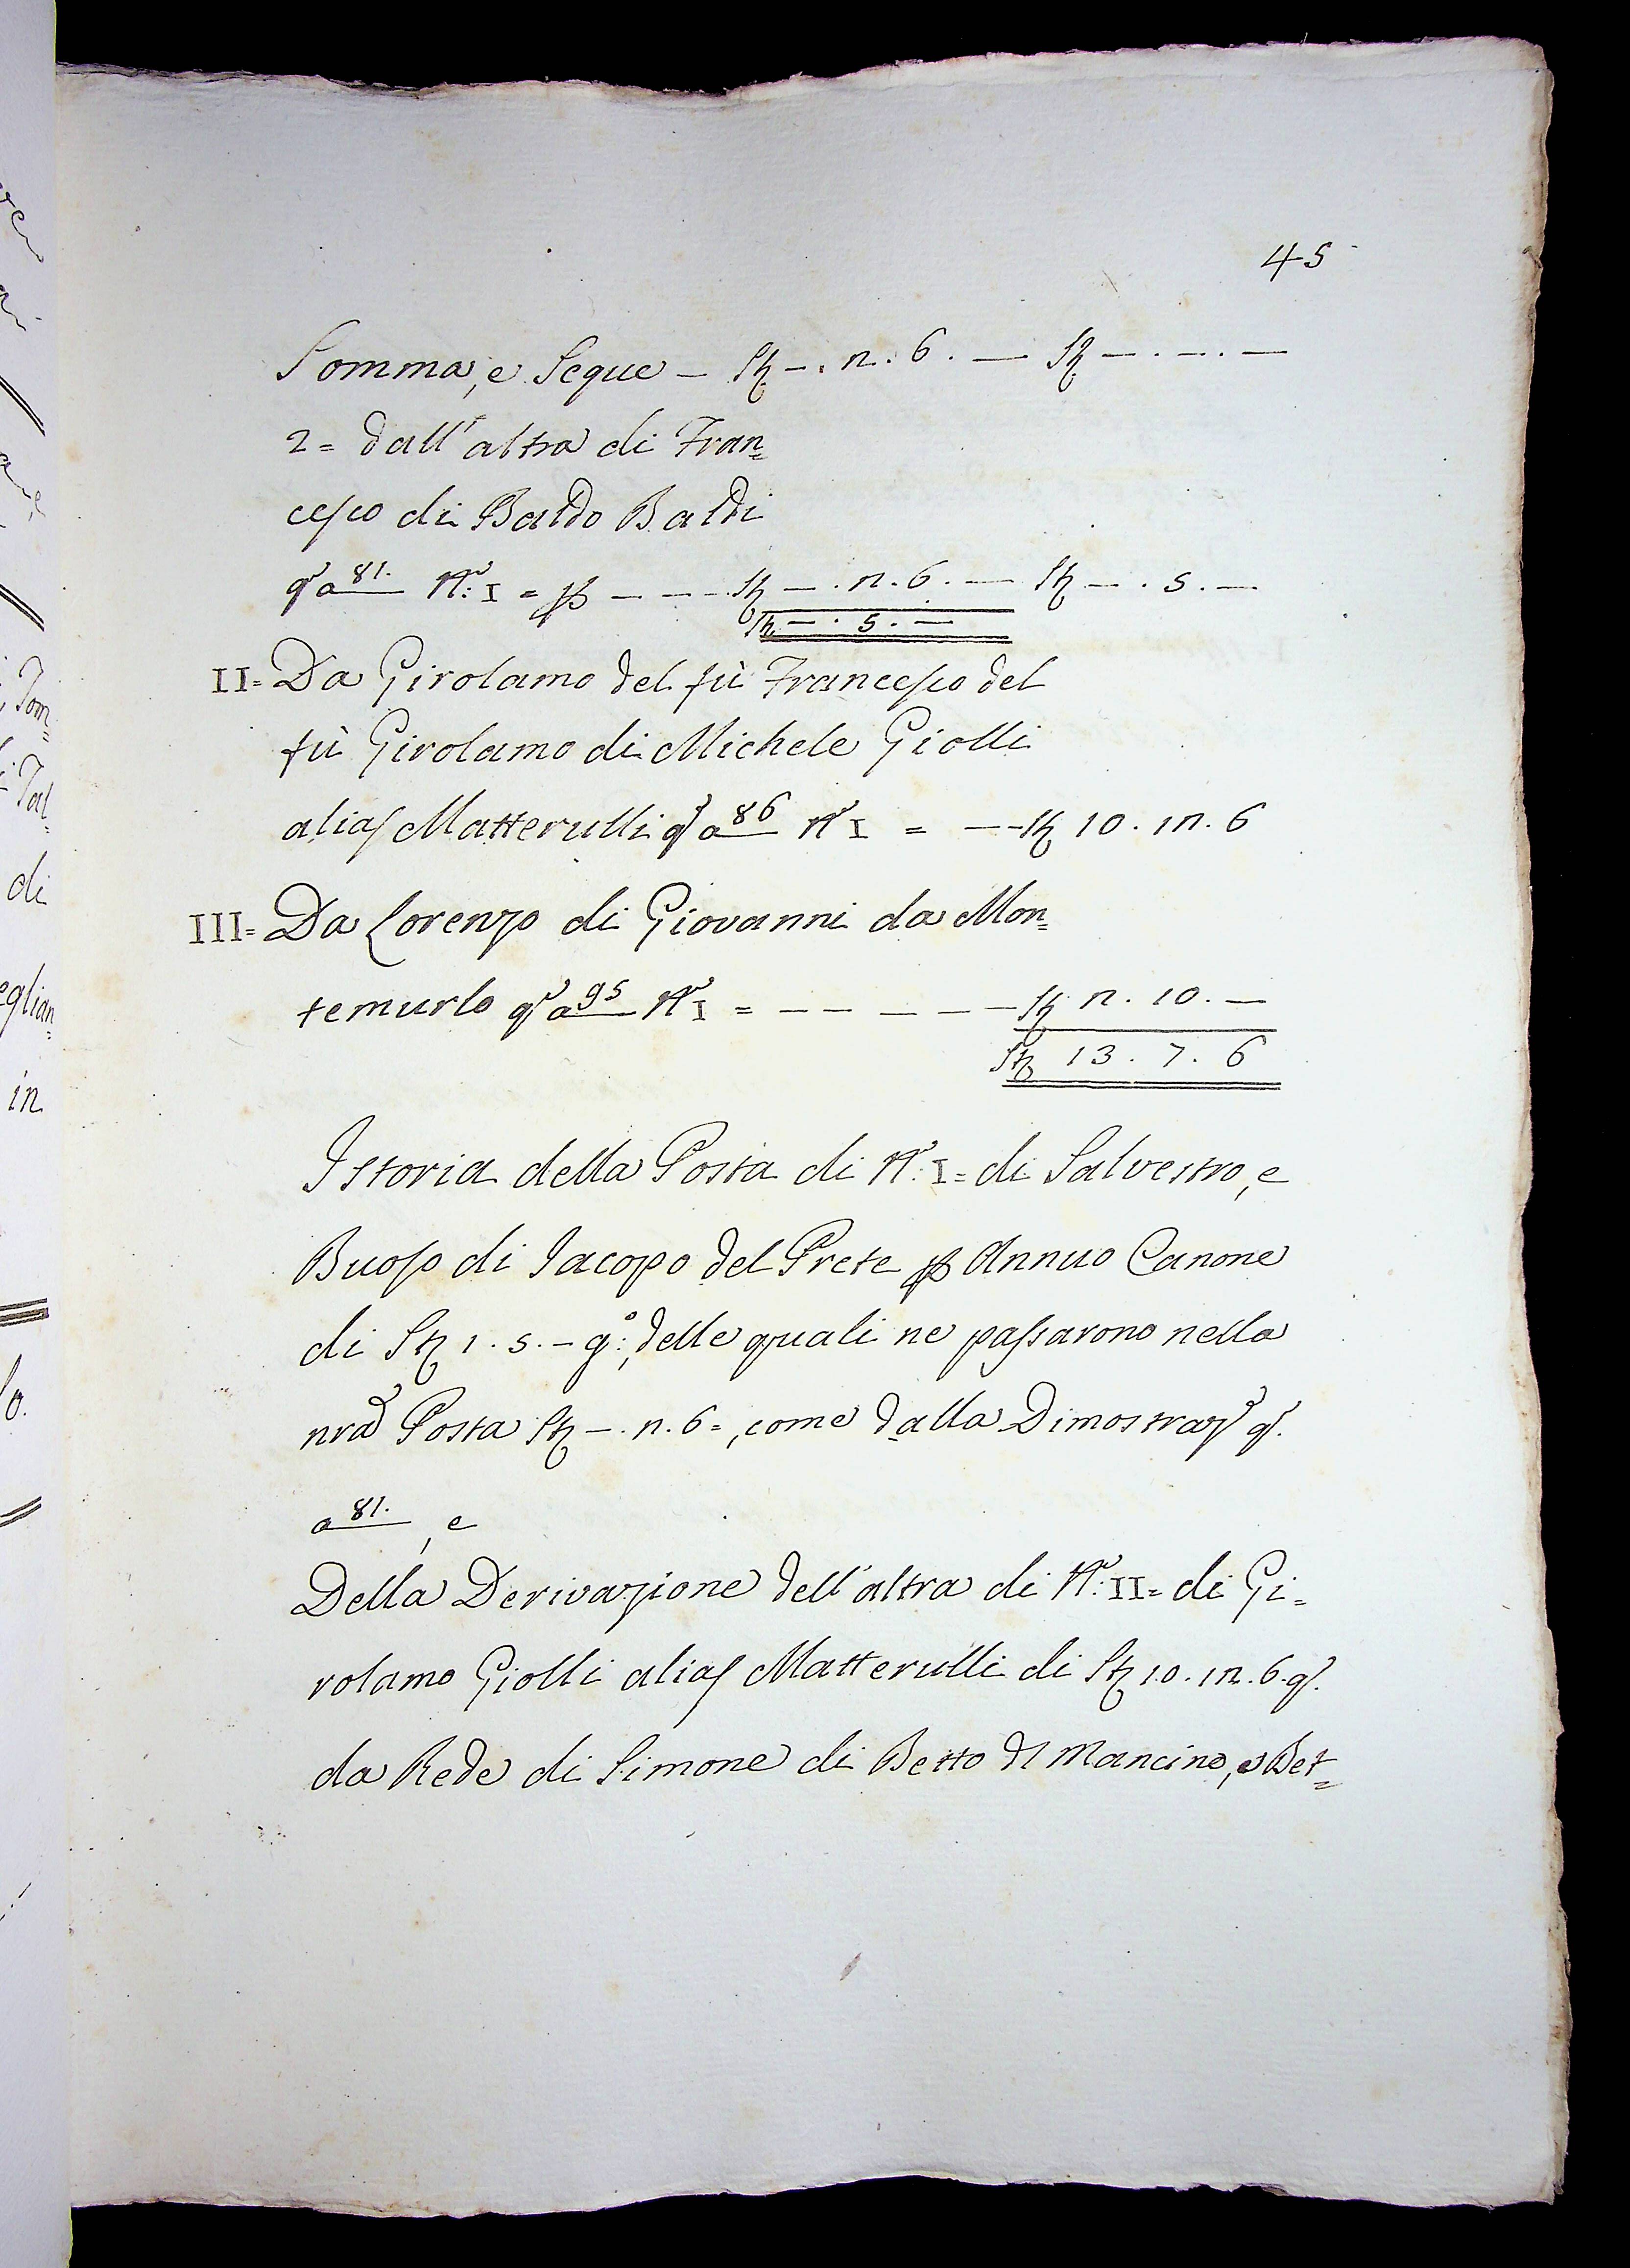 45
Somma, e Segue - St -. 2. 6. — St —. —. —
2= dall'altra di Fran=
cesco di Baldo Baldi
qº a 81. Nº: I = p - - - St —. 2. 6. — St —. 5. —
St. —. 5. —
II= Da Girolamo del fù Francesco del
fù Girolamo di Michele Giolli
alias Matterulli qº a 86 Nº I = - - St 10. 12. 6
III= Da Lorenzo di Giovanni da Mon=
temurlo qº a 95 Nº I = - - - - - St 2. 10. —
St 13. 7. 6
Istoria della Posta di Nº: I= di Salvestro, e
Buoso di Jacopo del Prete p Annuo Canone
di St 1. 5. - gº:, delle quali ne passarono nella
nrã Posta St —. 2. 6=, come dalla Dimostrazº qº.
a 81. , e
Della Derivazione dell'altra di Nº: II= di Gi=
rolamo Giolli alias Matterulli di St 10. 12. 6. gº.
da Rede di Simone di Betto dl Mancino, e Bet=